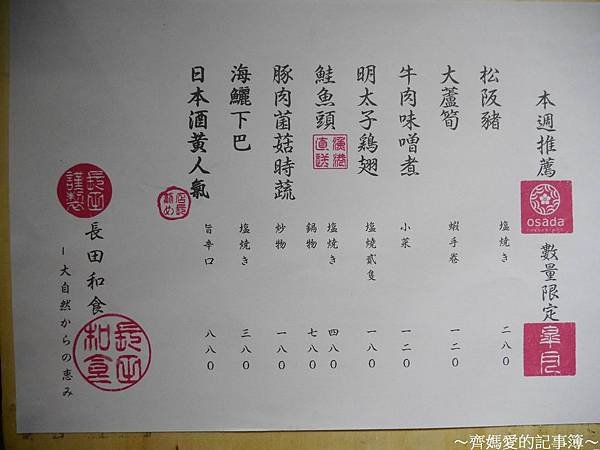 本週推薦 osada 數量限定 皐月
松阪豬 塩焼き 二八〇
大蘆筍 蝦手卷 一二〇
牛肉味噌煮 小菜 一二〇
明太子鶏翅 塩燒貳隻 一八〇
鮭魚頭 漁港直送 塩燒き 四八〇
鍋物 七八〇
豚肉菌菇時蔬 炒物 一八〇
海鱺下巴 塩燒き 三八〇
日本酒黃人氣 旨辛口 八八〇
長田謹製 長田和食 長田和食
－大自然からの恵み
～齊媽愛的記事簿～